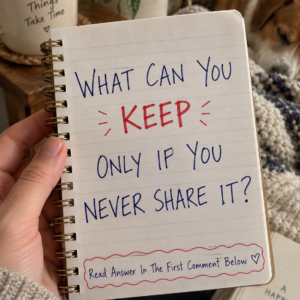 Things
Take Time
WHAT CAN YOU
KEEP
ONLY IF YOU
NEVER SHARE IT?
Read Answer In The First Comment Below ♡
A